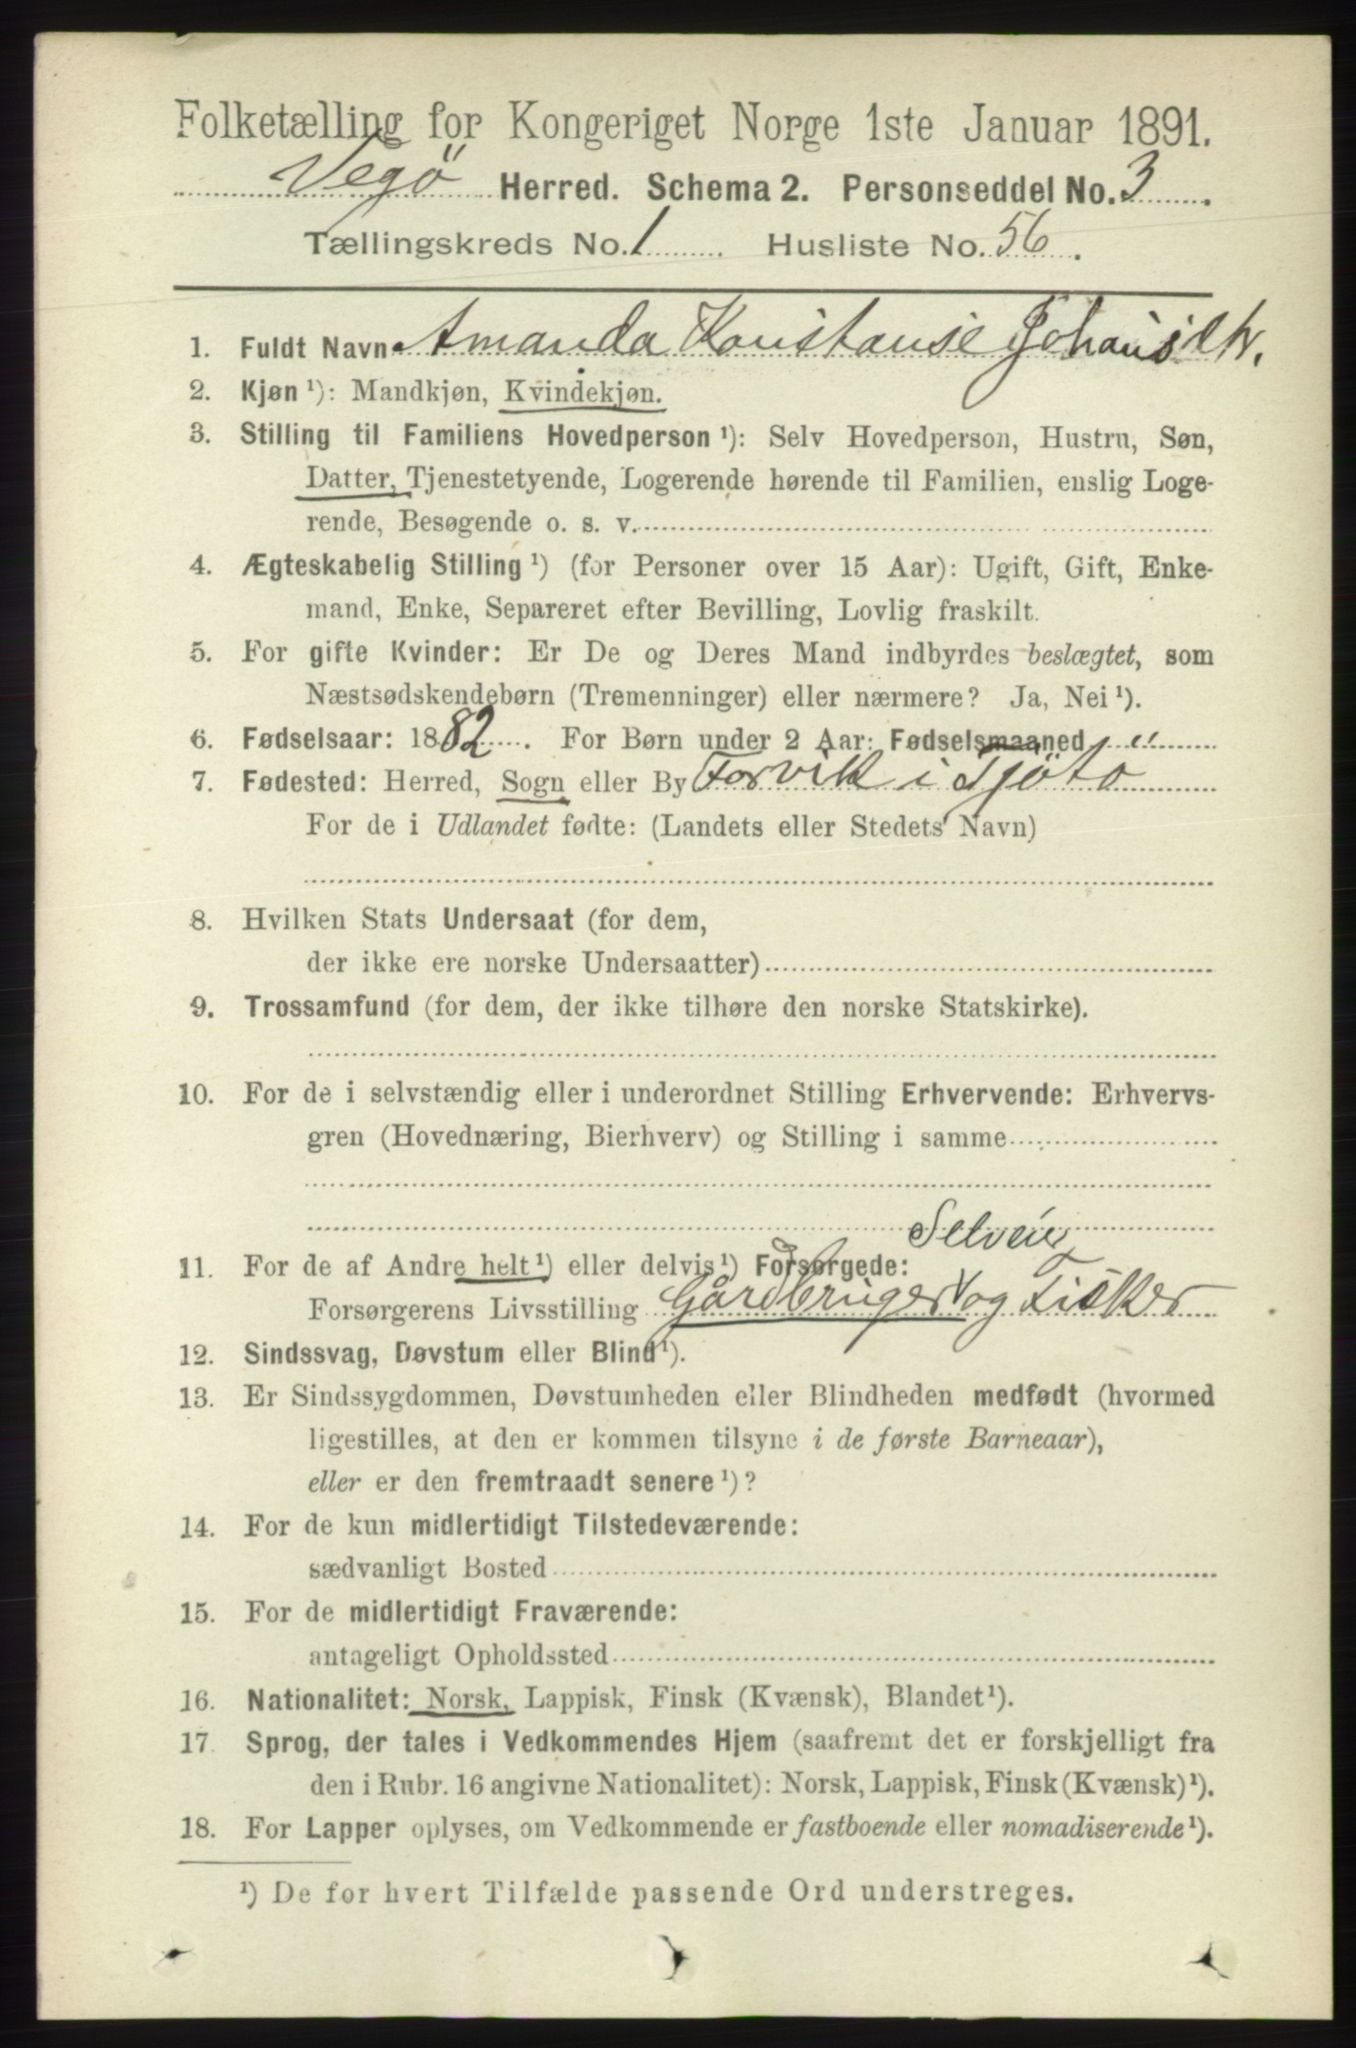 Folketælling for Kongeriget Norge 1ste Januar 1891.
Vegö Herred. Schema 2. Personseddel No. 3
Tællingskreds No. 1 Husliste No. 56.
1. Fuldt Navn Amanda Konstanse Johansdtr.
2. Kjøn ¹): Mandkjøn, Kvindekjøn.
3. Stilling til Familiens Hovedperson ¹): Selv Hovedperson, Hustru, Søn,
Datter, Tjenestetyende, Logerende hørende til Familien, enslig Loge-
rende, Besøgende o. s. v.
4. Ægteskabelig Stilling ¹) (for Personer over 15 Aar): Ugift, Gift, Enke-
mand, Enke, Separeret efter Bevilling, Lovlig fraskilt.
5. For gifte Kvinder: Er De og Deres Mand indbyrdes beslægtet, som
Næstsødskendebørn (Tremenninger) eller nærmere? Ja, Nei ¹).
6. Fødselsaar: 1882. For Børn under 2 Aar: Fødselsmaaned "
7. Fødested: Herred, Sogn eller By Forvik i Tjötö
For de i Udlandet fødte: (Landets eller Stedets Navn)
8. Hvilken Stats Undersaat (for dem,
der ikke ere norske Undersaatter)
9. Trossamfund (for dem, der ikke tilhøre den norske Statskirke).
10. For de i selvstændig eller i underordnet Stilling Erhvervende: Erhvervs-
gren (Hovednæring, Bierhverv) og Stilling i samme
Selveier
11. For de af Andre helt ¹) eller delvis ¹) Forsørgede:
Forsørgerens Livsstilling Gårdbruger og Fisker
12. Sindssvag, Døvstum eller Blind ¹).
13. Er Sindssygdommen, Døvstumheden eller Blindheden medfødt (hvormed
ligestilles, at den er kommen tilsyne i de første Barneaar),
eller er den fremtraadt senere ¹)?
14. For de kun midlertidigt Tilstedeværende:
sædvanligt Bosted
15. For de midlertidigt Fraværende:
antageligt Opholdssted
16. Nationalitet: Norsk, Lappisk, Finsk (Kvænsk), Blandet ¹).
17. Sprog, der tales i Vedkommendes Hjem (saafremt det er forskjelligt fra
den i Rubr. 16 angivne Nationalitet): Norsk, Lappisk, Finsk (Kvænsk) ¹).
18. For Lapper oplyses, om Vedkommende er fastboende eller nomadiserende ¹).
¹) De for hvert Tilfælde passende Ord understreges.